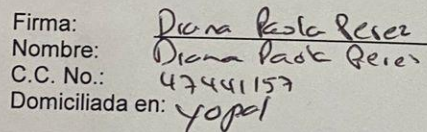 Firma: Diana Paola Perez
Nombre: Diana Paola Perez
C.C. No.: 47441157
Domiciliada en: yopal